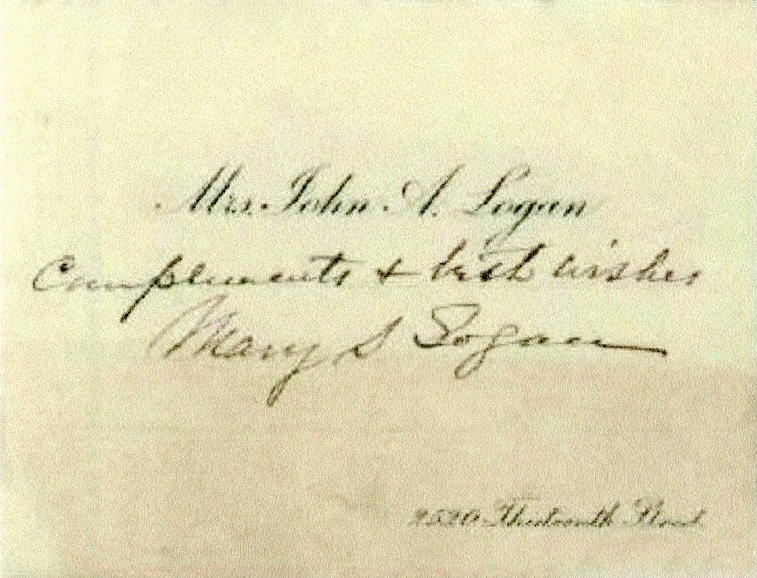 Mrs. John A. Logan
Compliments & best wishes
Mary S Logan
Thirteenth Street